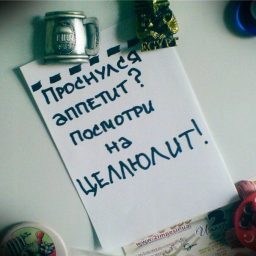 Проснулся
аппетит?
посмотри
на
целлюлит!